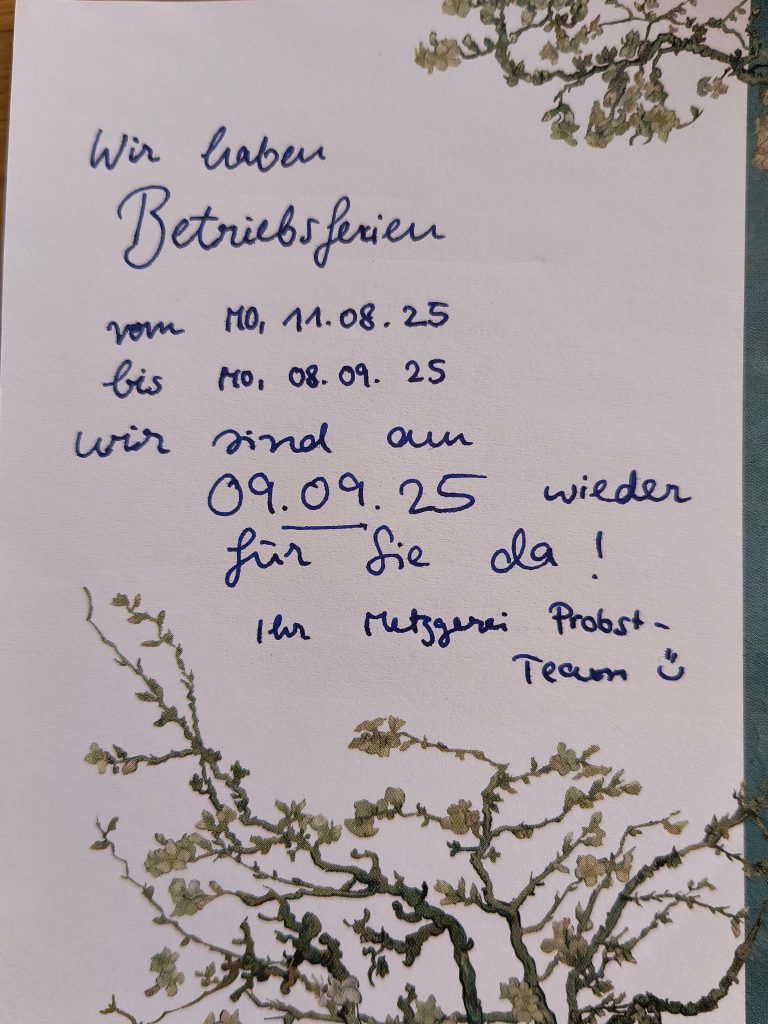 Wir haben
Betriebsferien
vom Mo, 11.08.25
bis Mo, 08.09.25
wir sind am
09.09.25 wieder
für Sie da!
Ihr Metzgerei Probst-
Team ☺